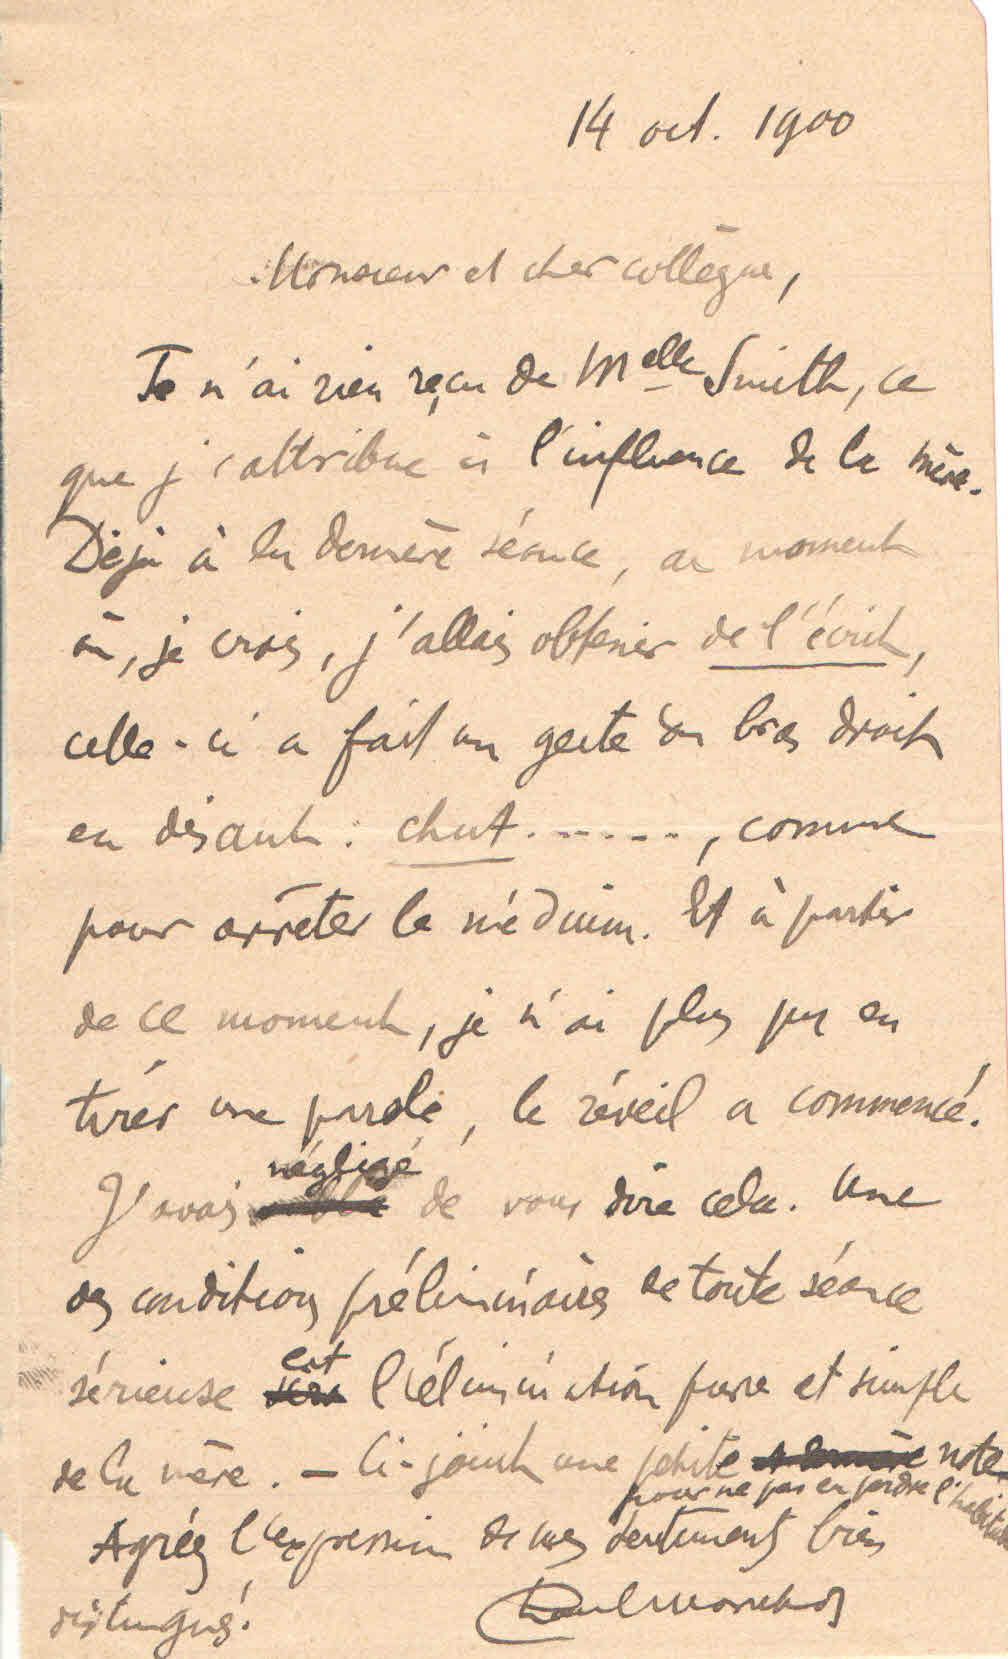 14 oct. 1900
Monsieur et cher collègue,
Je n'ai rien reçu de Melle Smith, ce
que j'attribue à l'influence de la mère.
Déjà à la dernière séance, au moment
où, je crois, j'allais obtenir de l'écrit,
celle-ci a fait un geste du bras droit
en disant : chut......, comme
pour arrêter le médium. Et à partir
de ce moment, je n'ai plus pu en
tirer une parole, le réveil a commencé.
négligé
J'avais de vous dire cela. Une
des conditions préliminaires de toute séance
est
sérieuse sera l'élimination pure et simple
de la mère. — Ci-joint une petite note
pour ne pas en perdre l'habitude
Agréez l'expression de mes sentiments bien
distingués.